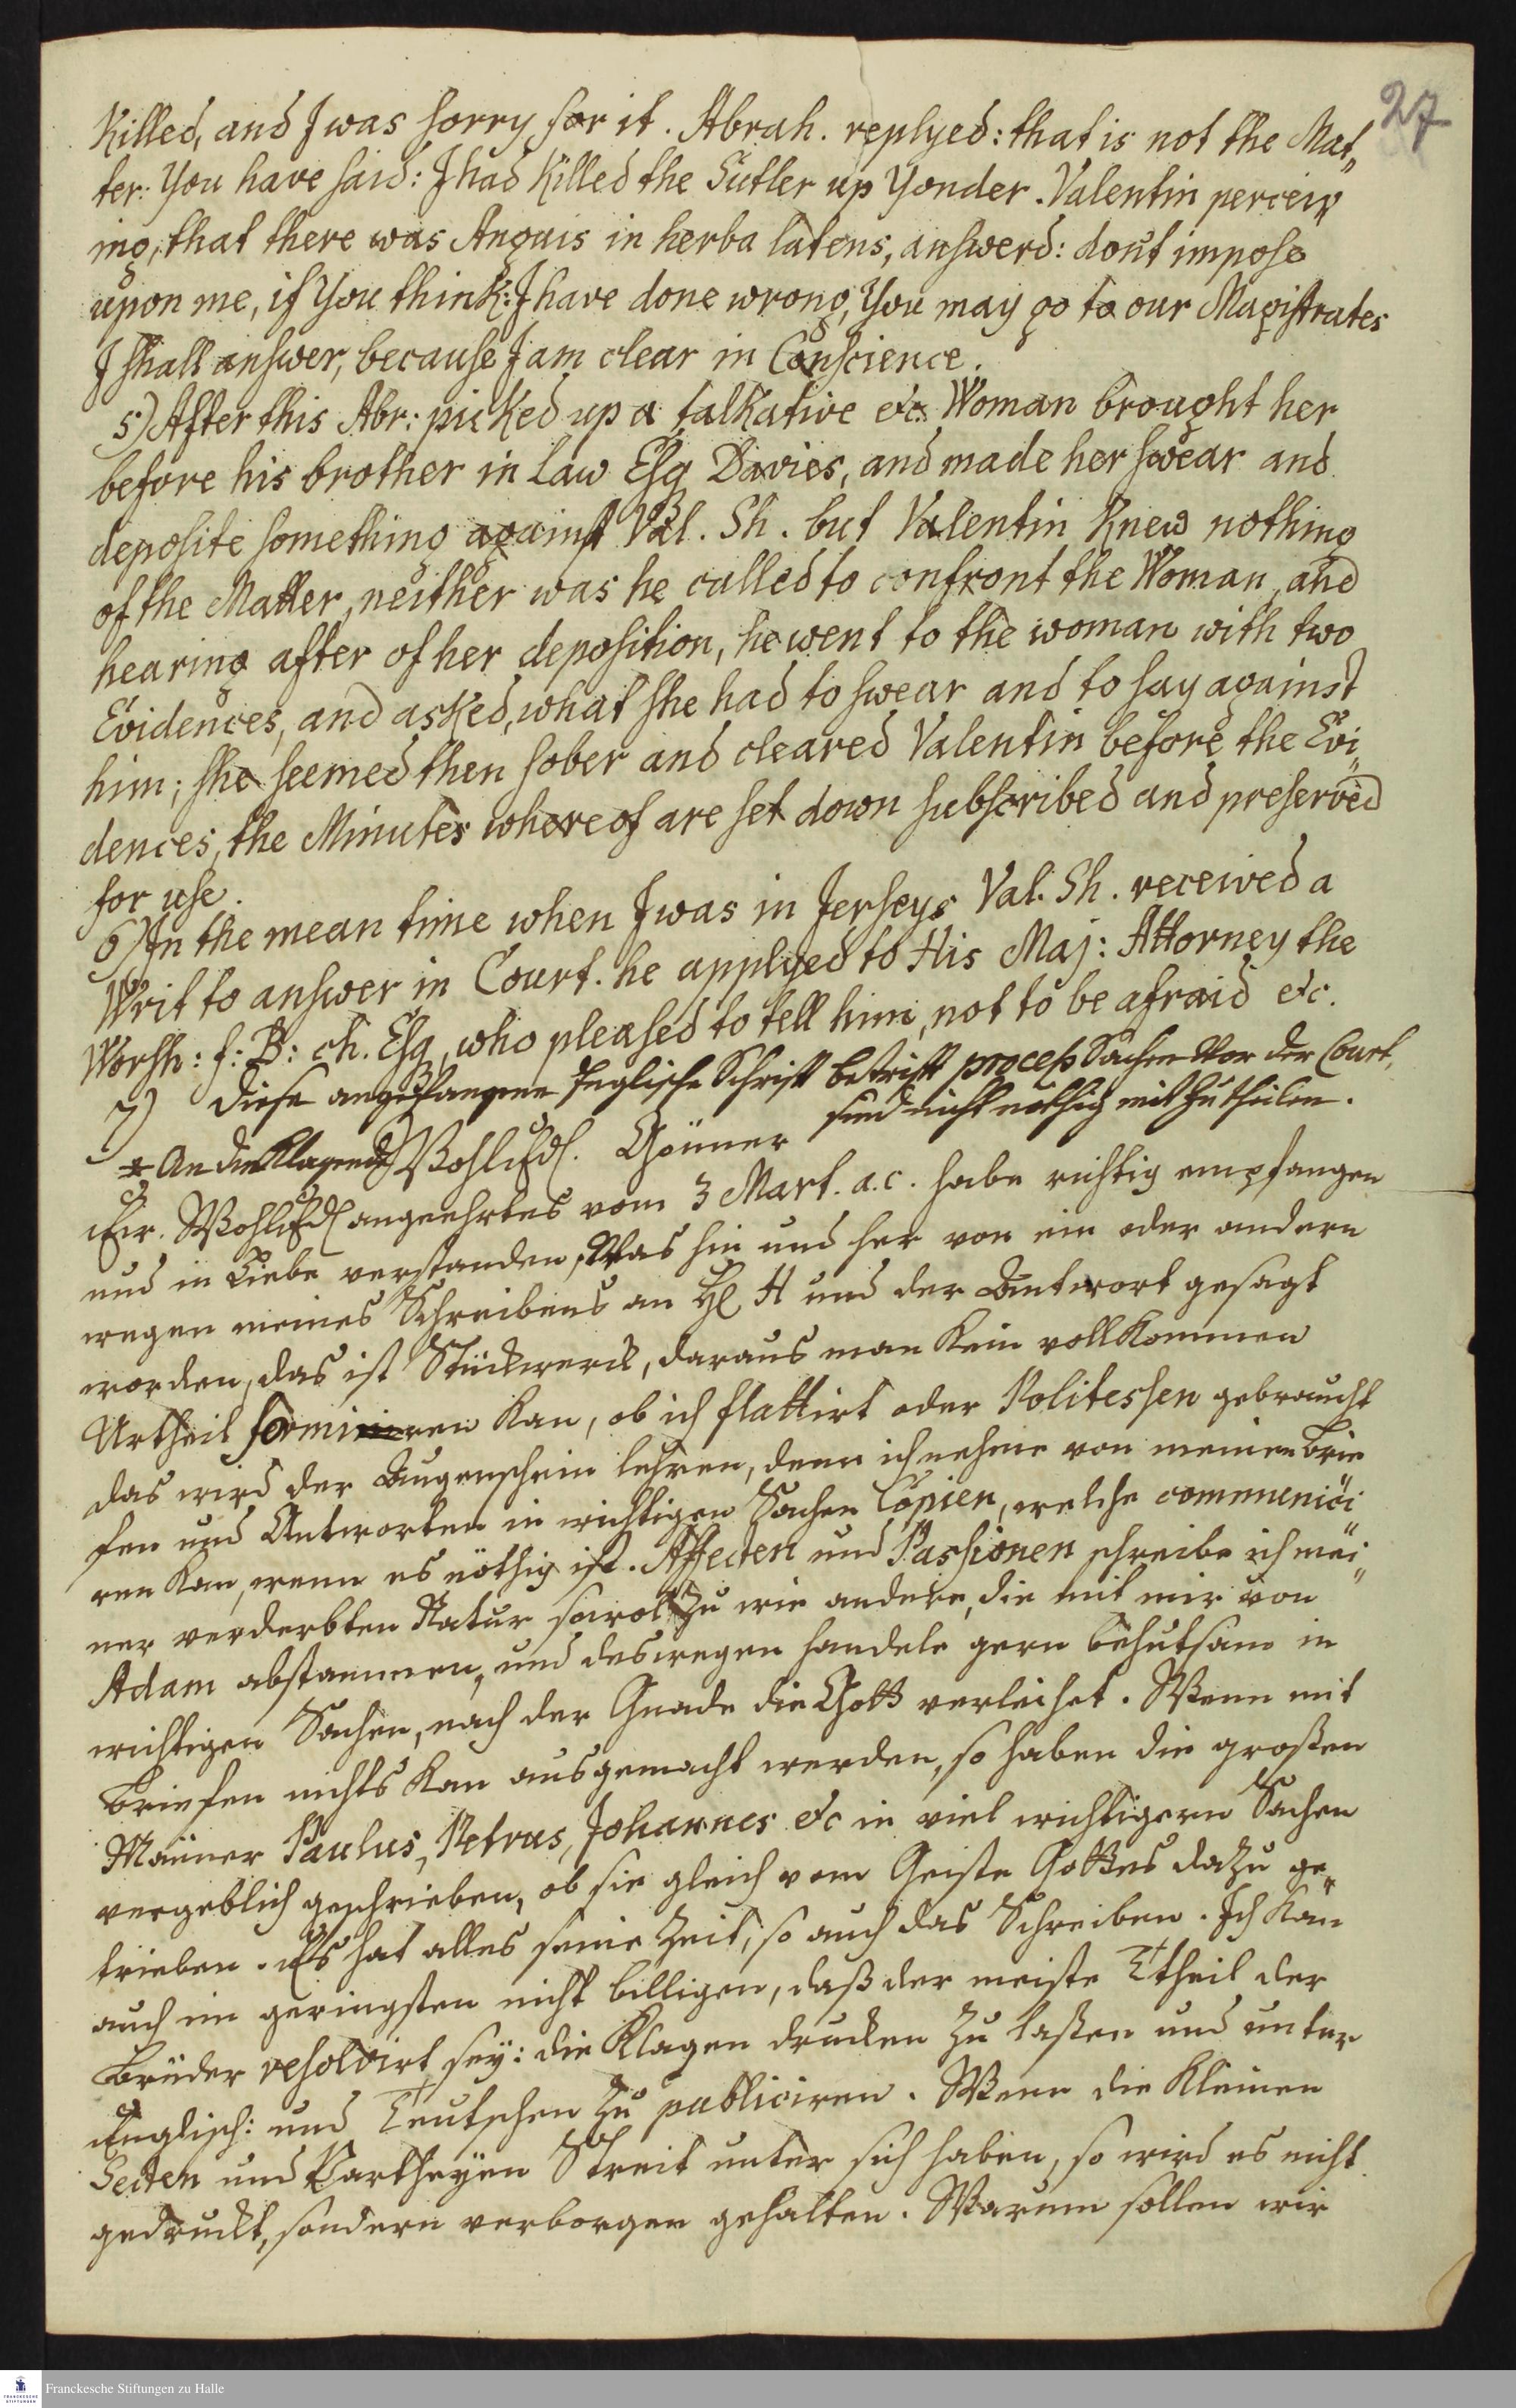 27
Killed, and I was sorry for it. Abrah. replyed: that is not the Mat„
ter: You have said: I had Killed the Sutler up Yonder. Valentin perceiv„
ing, that there was Anguis in herba latens, answerd: dont impose
upon me, if You think: I have done wrong, You may go to our Magistrates
I shall answer, because I am clear in Conscience.
5) After this Abr: picKed up a talKative etc. Woman brought her
before his brother in Law Esq Davies, and made her swear and
deposite something against Val. Sh. but Valentin Knew nothing
of the Matter, neither was he called to confront the Woman, and
hearing after of her deposition, he went to the woman with two
Evidences, and asKed, what she had to swear and to say against
him; she seemed then sober and cleared Valentin before the Evi„
dences, the Minutes whereof are set down subscribed and preserved
for use.
6) In the mean time when I was in Jerseys Val. Sh. received a
Writ to answer in Court. he applyed to His Maj: Attorney the
Worsh: f: B: ch. Esq, who pleased to tell him, not to be afraid etc.
7) Diese angefangene Englische Schrift betrifft process Sachen vor der Court,
sind nicht nöthig mit zu theilen.
* An die Wohledl. Gönner
Eur. Wohledl angeehrtes vom 3 Mart. a. c. habe richtig empfangen
und in Liebe verstanden, Was hin und her von ein oder andern
wegen meines Schreibens an H H und der Antwort gesagt
worden, das ist Stückwerck, daraus man Kein vollKommen
Urtheil formiren Kan, ob ich flattirt oder Politessen gebraucht
das wird der Augenschein lehren, denn ich nehme von meinen Brie
fen und Antworten in wichtigen Sachen Copien, welche communici„
ren Kan, wenn es nöthig ist. Affecten und Passionen schreibe ich mei„
ner verderbten Natur sowol zu wie andere, die mit mir von
Adam abstammen, und deswegen handele gern behutsam in
wichtigen Sachen, nach der Gnade die Gott verleihet. Wenn mit
Briefen nichts Kan ausgemacht werden, so haben die großen
Männer Paulus, Petrus, Johannes etc in viel wichtigern Sachen
vergeblich geschrieben, ob sie gleich vom Geiste Gottes dazu ge„
trieben. Es hat alles seine Zeit, so auch das Schreiben. Ich Kan
auch im geringsten nicht billigen, daß der meiste Theil der
Brüder resolvirt sey: die Klagen drucken zu laßen und unter
Englisch: und Teutschen zu publiciren. Wenn die Kleinen
Secten und Partheyen Streit unter sich haben, so wird es nicht
gedruckt, sondern verborgen gehalten. Warum sollen wir
Franckesche Stiftungen zu Halle